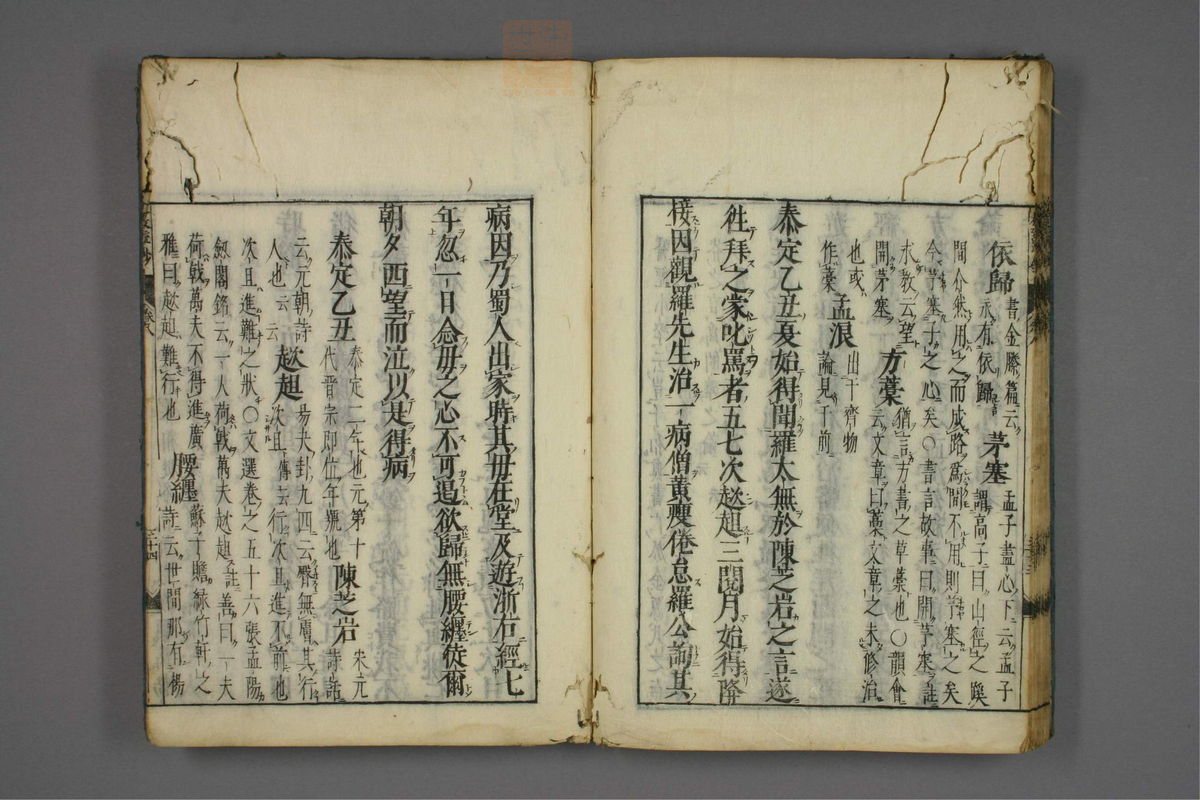 依歸 書金縢篇云
永有依歸 茅塞 孟子盡心下云孟子
謂高子曰山徑之蹊
間介然用之而成路爲間不用則茅塞之矣
今茅塞子之心矣〇書言故事曰開茅塞註
求教云望
開茅塞 方藁 猶言方書之草藁也〇韻會
云文章曰藁文章之未修治
也或
作藁 孟浪 出于齊物
論見于前
泰定乙丑夏始得聞羅太無於陳芝岩之言遂
徃拜之蒙叱罵者五七次趑趄三閱月始得降
接因觀羅先生治一病僧黃瘦倦怠羅公詢其
病因乃蜀人出家時其母在堂及遊浙右經七
年忽一日念母之心不可遏欲歸無腰纏徒爾
朝夕西望而泣以是得病
泰定乙丑 泰定二年也元第十
代晋宗即位年號也 陳芝岩 宋元
詩話
云元朝詩
人也云云 趑趄 易夬卦九四云臀無膚其行
次且傳云行次且進不前也
次且進難之狀〇文選卷之五十六張孟陽
劔閣銘云一人荷戟萬夫趑趄註善曰一夫
荷戟萬夫不得進廣
雅曰趑趄難行也 腰纏 蘇子瞻綠竹軒之
詩云世間那有揚